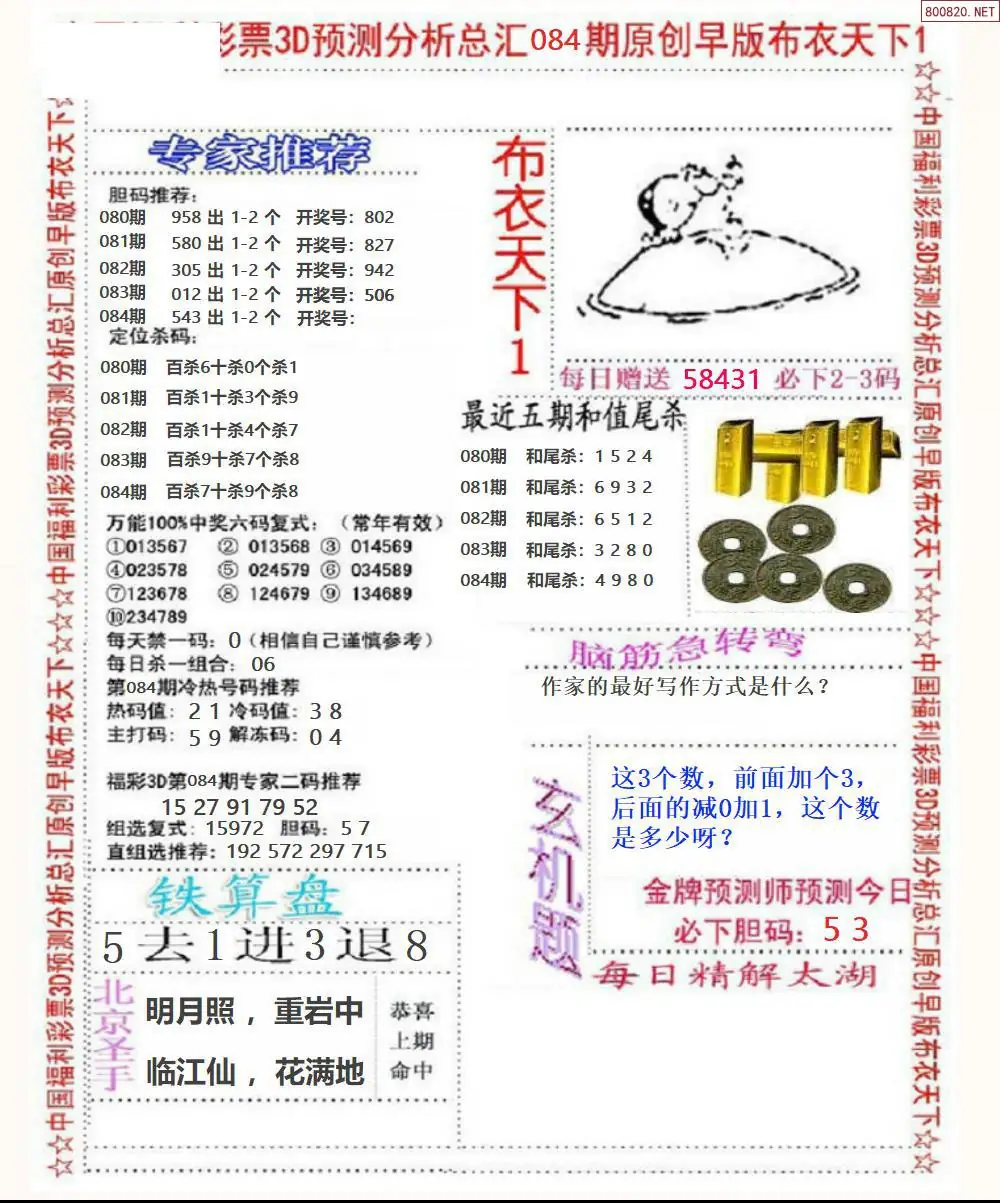 800820.NET
彩票3D预测分析总汇084期原创早版布衣天下1
☆☆中国福利彩票3D预测分析总汇原创早版布衣天下☆☆☆中国福利彩票3D预测分析总汇原创早版布衣天下☆
专家推荐
胆码推荐:
080期 958 出 1-2 个 开奖号: 802
081期 580 出 1-2 个 开奖号: 827
082期 305 出 1-2 个 开奖号: 942
083期 012 出 1-2 个 开奖号: 506
084期 543 出 1-2 个 开奖号:
定位杀码:
080期 百杀6十杀0个杀1
081期 百杀1十杀3个杀9
082期 百杀1十杀4个杀7
083期 百杀9十杀7个杀8
084期 百杀7十杀9个杀8
万能100%中奖六码复式: (常年有效)
①013567 ② 013568 ③ 014569
④023578 ⑤ 024579 ⑥ 034589
⑦123678 ⑧ 124679 ⑨ 134689
⑩234789
每天禁一码: 0(相信自己谨慎参考)
每日杀一组合: 06
第084期冷热号码推荐
热码值: 2 1 冷码值: 3 8
主打码: 5 9 解冻码: 0 4
福彩3D第084期专家二码推荐
15 27 91 79 52
组选复式: 15972 胆码: 5 7
直组选推荐: 192 572 297 715
铁算盘
5去1进3退8
北京圣手
明月照，重岩中
临江仙，花满地
恭喜
上期
命中
布衣天下1
每日赠送 58431 必下2-3码
最近五期和值尾杀
080期 和尾杀: 1 5 2 4
081期 和尾杀: 6 9 3 2
082期 和尾杀: 6 5 1 2
083期 和尾杀: 3 2 8 0
084期 和尾杀: 4 9 8 0
脑筋急转弯
作家的最好写作方式是什么？
玄机题
这3个数，前面加个3，
后面的减0加1，这个数
是多少呀？
金牌预测师预测今日
必下胆码: 5 3
每日精解太湖
☆☆中国福利彩票3D预测分析总汇原创早版布衣天下☆☆☆中国福利彩票3D预测分析总汇原创早版布衣天下☆☆